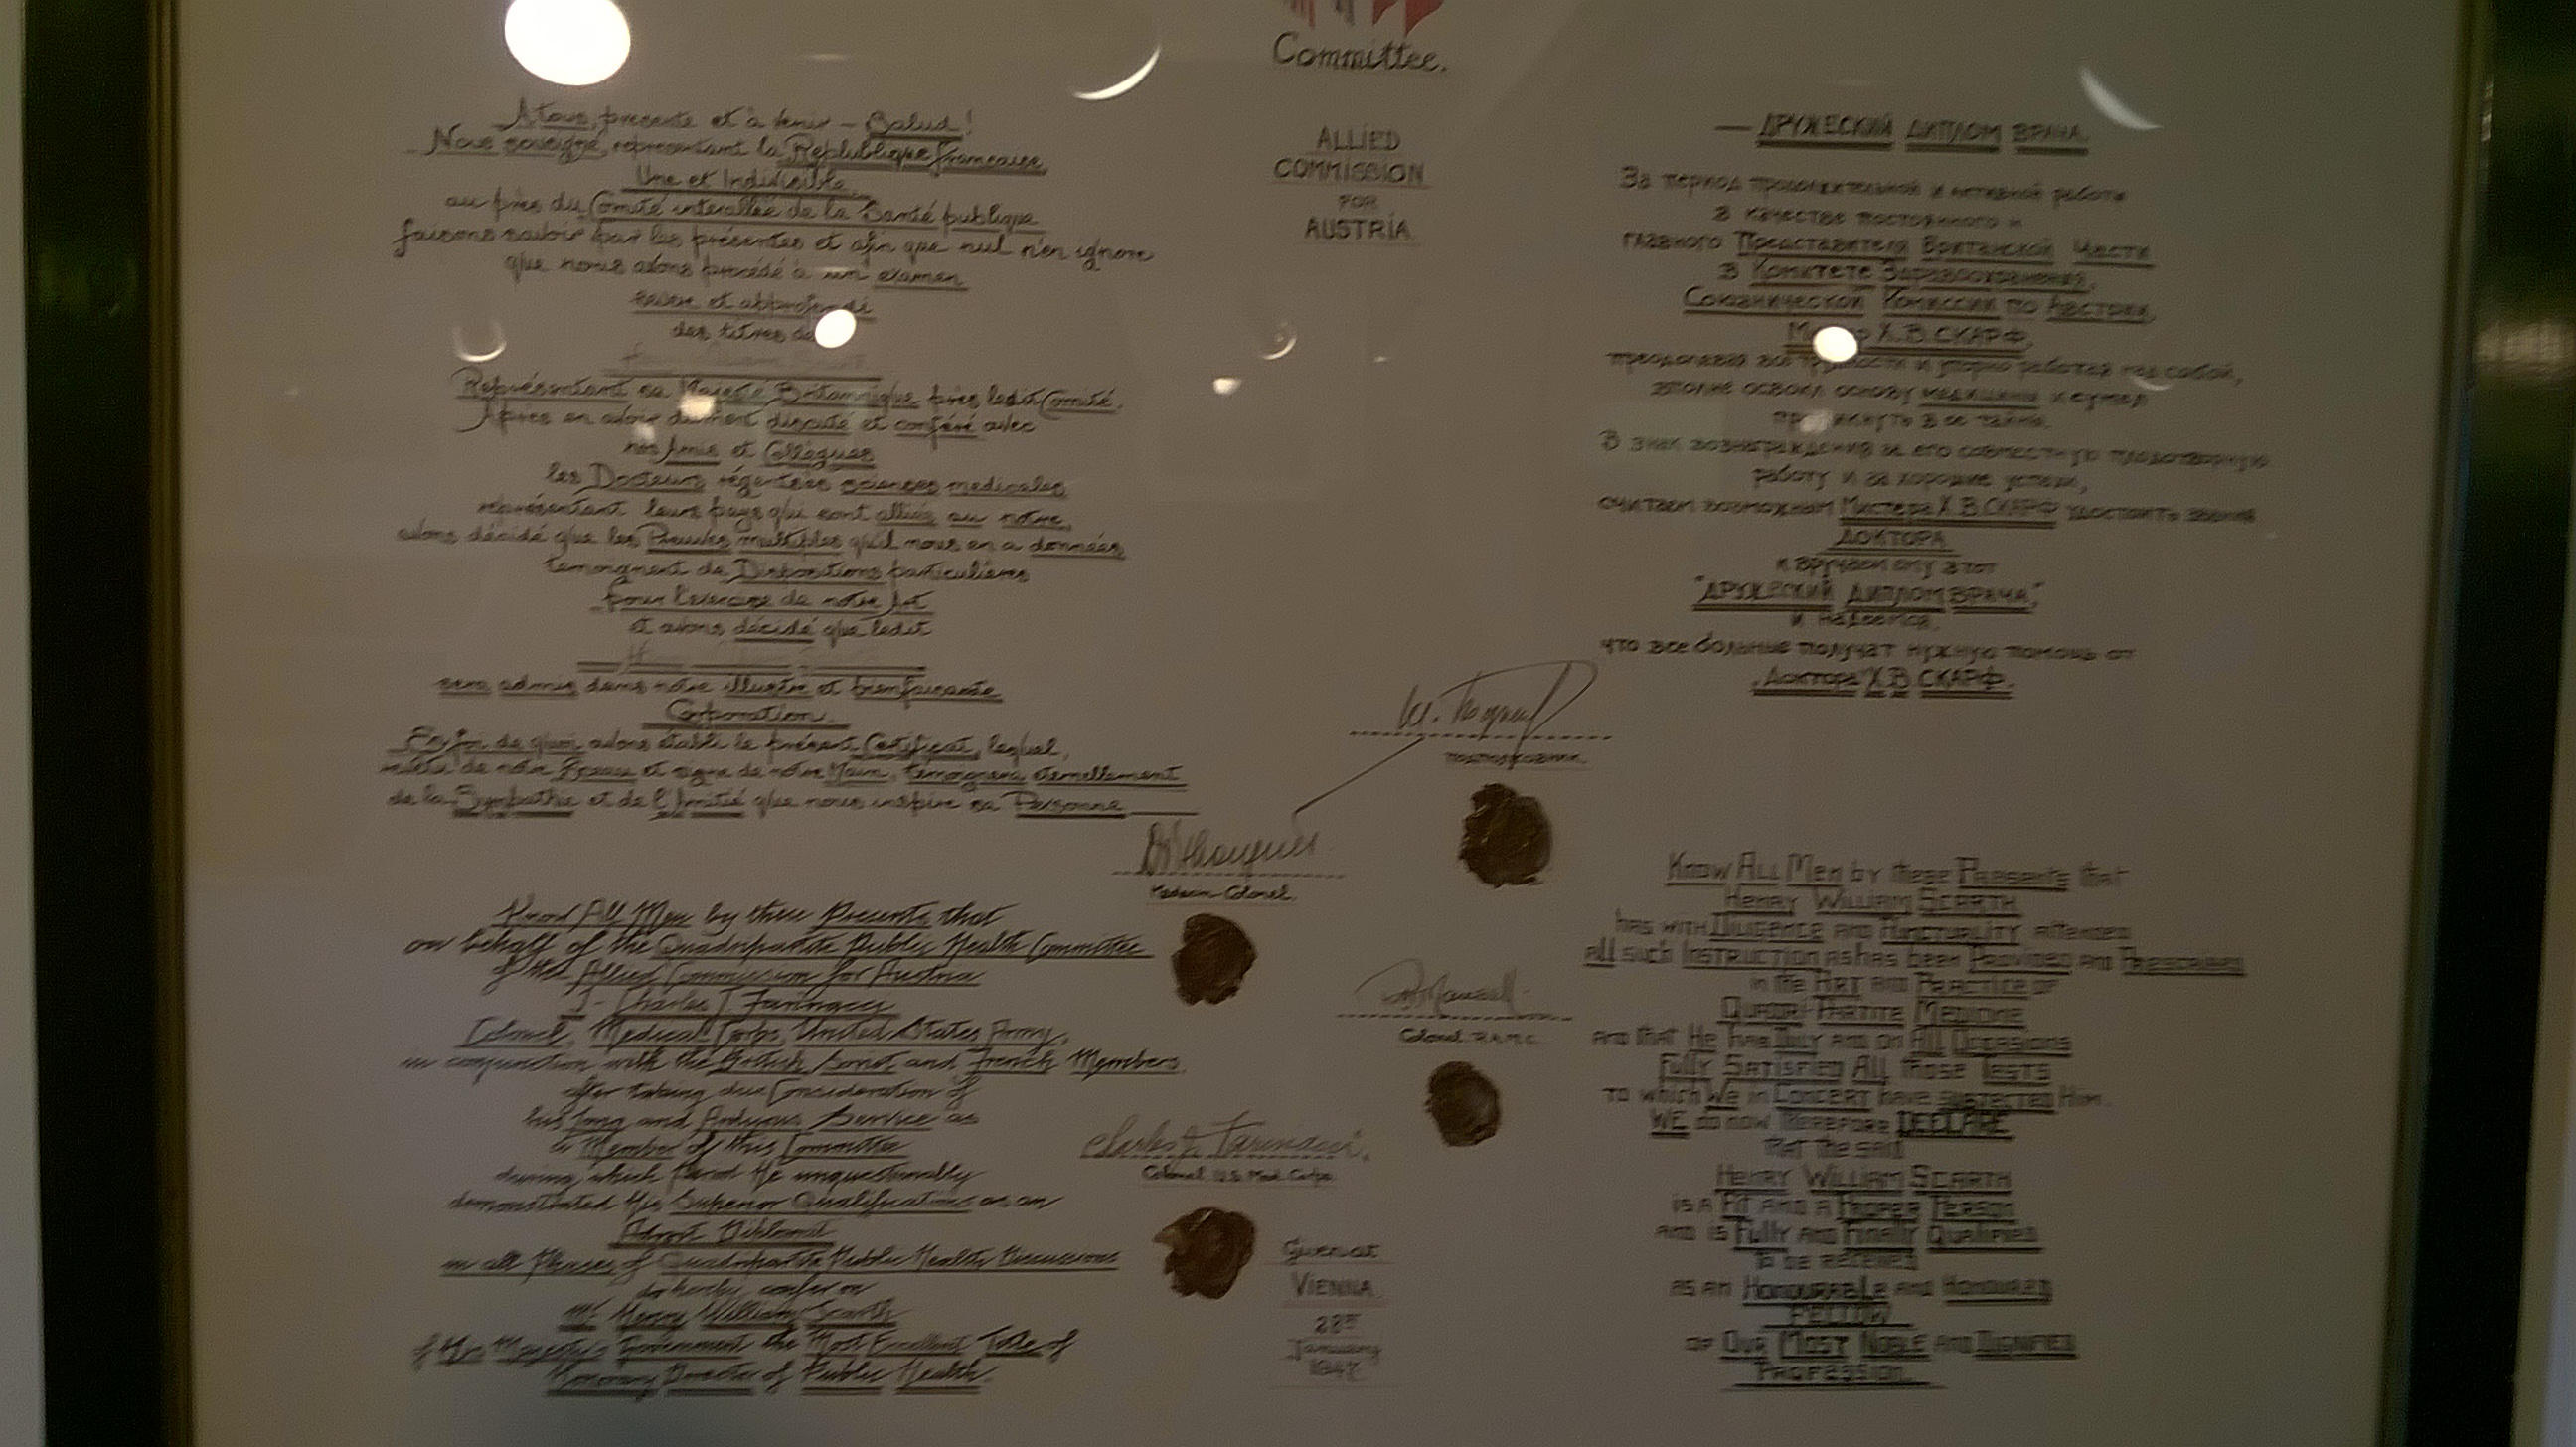 Committee.
ALLIED
COMMISSION
FOR
AUSTRIA
A tous, présents et à venir – Salud!
Nous soussigné, représentant la République Francaise,
Une et Indivisible
au près du Comité interalliée de la Santé publique
faisons savoir par les présentes et afin que nul n'en ignore
que nous avons procédé à un examen
et approfondi
des titres de
Représentant sa Majesté Britannique près ledit Comité.
Après en avoir dument disputé et conféré avec
nos Amis et Collègues
les Docteurs régents ès sciences medicales
représentant leurs pays qui sont alliés au nôtre,
avons décidé que les Preuves multiples qu'il nous en a données
temoignent de Dispositions particulières
pour l'exercise de notre Art
et avons décidé que ledit
sera admis dans notre illustre et bienfaisante
Corporation.
En foi de quoi avons établi le présent Certificat, lequel,
de notre Sceau et signé de notre Main, témoignera eternellement
de la Sympathie et de l'Amitié que nous inspire sa Personne
Médecin-Colonel.
— ДРУЖЕСКИЙ ДИПЛОМ ВРАЧА.
За период продолжительной и активной работы
в качестве постоянного и
главного Представителя Британской Части
в Комитете Здравоохранения,
Союзнической Комиссии по Австрии,
Х.В.СКАРФ,
преодолевая все трудности и упорно работая над собой,
вполне освоил основу медицины и сумел
проникнуть в ее тайны.
В знак вознаграждения за его совместную плодотворную
работу и за хорошие успехи,
считаем возможным Мистера Х.В.СКАРФ удостоить звания
ДОКТОРА
и вручаем ему этот
"ДРУЖЕСКИЙ ДИПЛОМ ВРАЧА",
и надеемся,
что все больные получат нужную помощь от
"Доктора" Х.В СКАРФ.
подполковник
Know All Men by these Presents that
on behalf of the Quadripartite Public Health Committee
of the Allied Commission for Austria
I - Charles J Farinacci
Colonel, Medical Corps, United States Army,
in conjunction with the British, Soviet and French Members,
after taking due Consideration of
his Long and Arduous Service as
a Member of this Committee
during which Period He unquestionably
demonstrated His Superior Qualifications as an
Adroit Diplomat
in all Phases of Quadripartite Public Health Discussions
do hereby confer on
Mr Henry William Scarth
of His Majesty's Government the Most Excellent Title of
Honorary Director of Public Health.
Charles J. Farinacci.
Colonel U.S. Med. Corps
Colonel R.A.M.C.
Know All Men by these Presents that
Henry William Scarth
has with Diligence and Punctuality attended
all such Instruction as has been Provided and Prescribed
in the Art and Practice of
Quadri-Partite Medicine
and that He has Duly and on All Occasions
Fully Satisfied All those Tests
to which We in Concert have subjected Him.
WE do now therefore DECLARE
that the said
Henry William Scarth
is a Fit and a Proper Person
and is Fully and Finally Qualified
to be received
as an Honourable and Honoured
FELLOW
of Our Most Noble and Dignified
Profession.
Given at
VIENNA
28th
January
1947